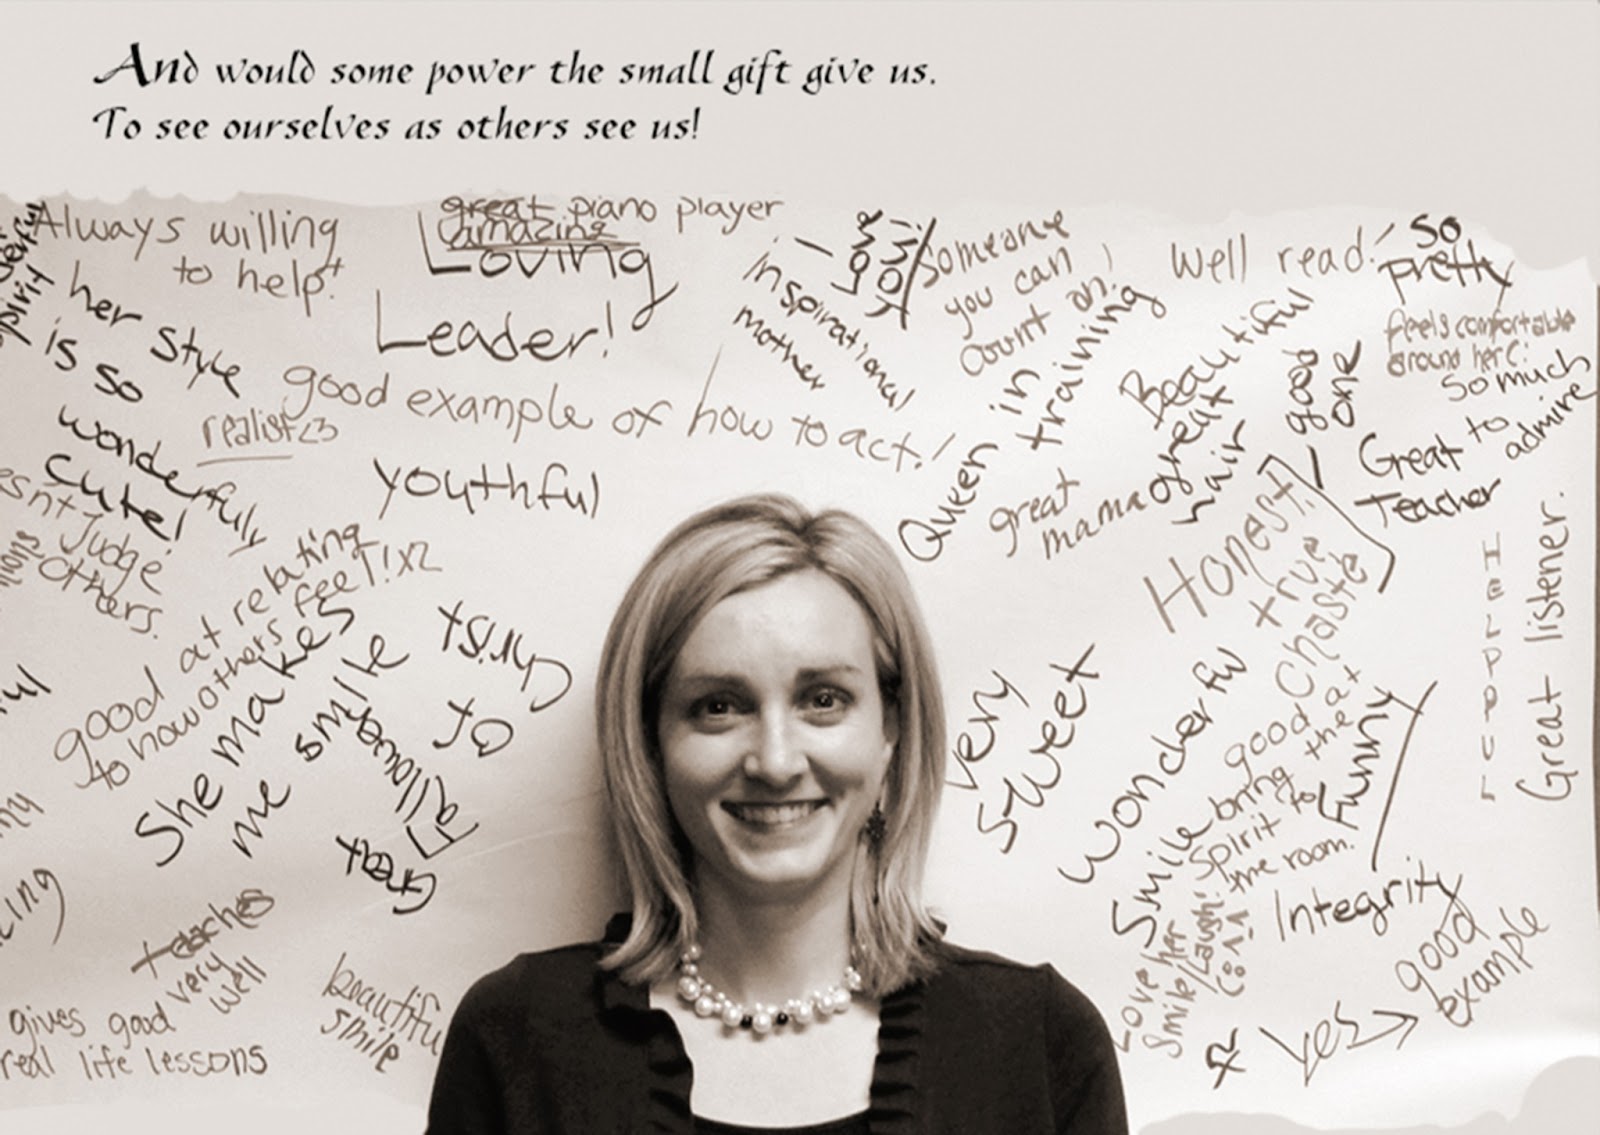 And would some power the small gift give us.
To see ourselves as others see us!
Always willing
to help!
great piano player
amazing
Loving
Leader!
her style
is so
wonderfully
cute!
realist <3
good example of how to act!
youthful
Judge
others.
good at relating
to how others feel! x2
She makes
me smile
Great
Follower
of
Christ
teaches
very
well
gives good
real life lessons
beautiful
smile
inspirational
mother
Someone
you can
count on!
Queen in
training
great
mama
Well read!
Beautiful
great
hair
good
one
so
pretty
feels comfortable
around her (:
so much
to
admire
Great
Teacher
Honest!
true
Chaste
HELPPUL
Great listener.
very
sweet
wonderful
Smile
good at
bring the
spirit to
the room.
Funny
Love her
smile/laugh!
Integrity
Yes → good
example